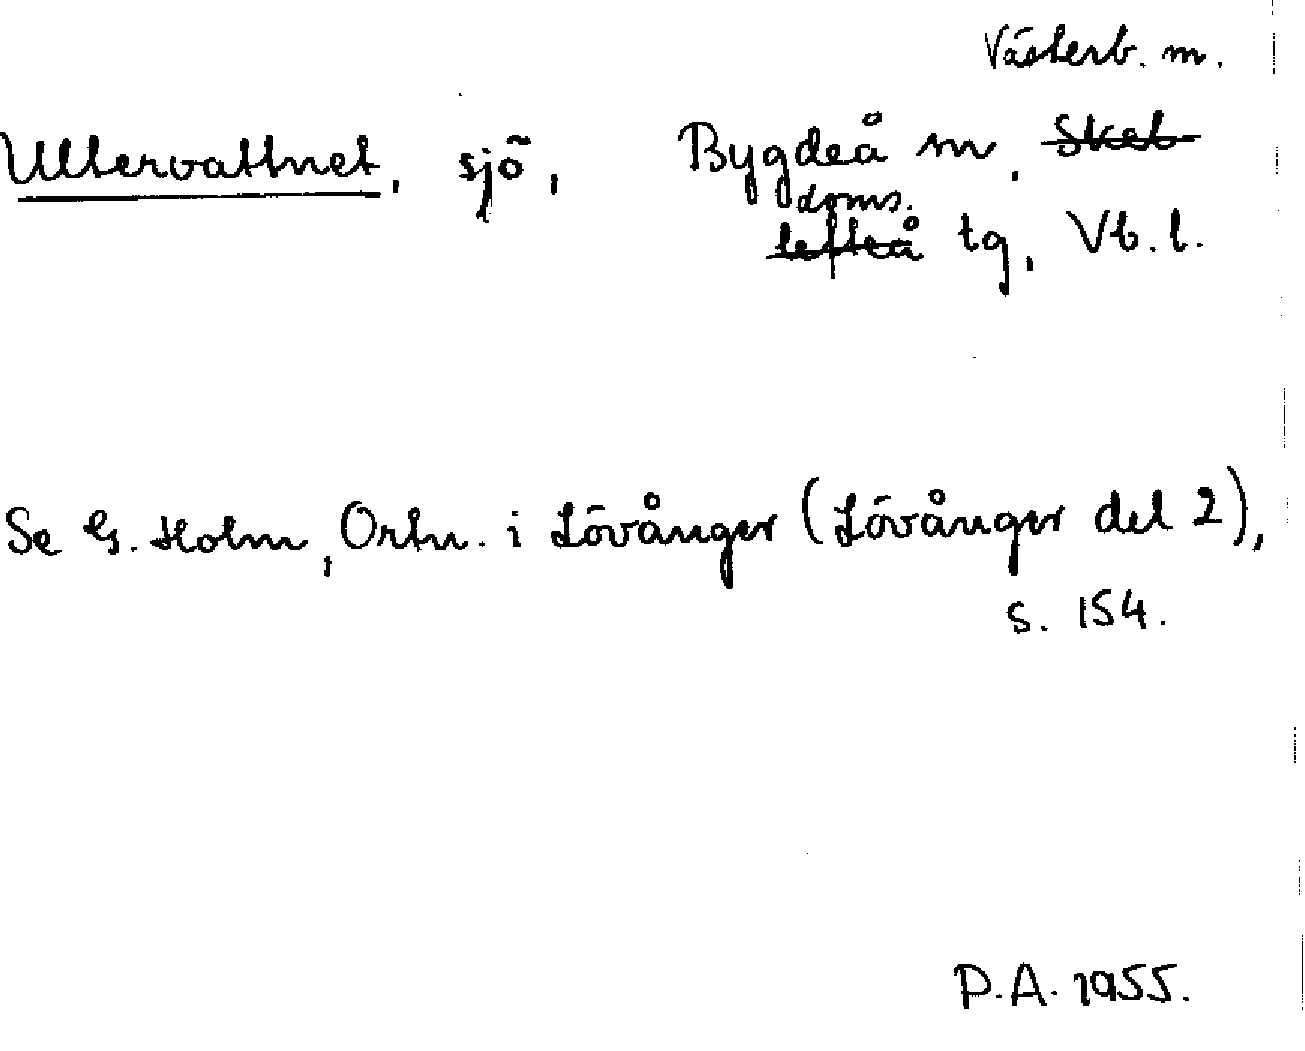 Västerb. m.
Ultervattnet, sjö, Bygdeå m, Skel
doms.
lefteå tg, Vb. l.
Se G. Holm, Ortn. i Lövånger (Lövånger del 2),
s. 154.
P.A. 1955.